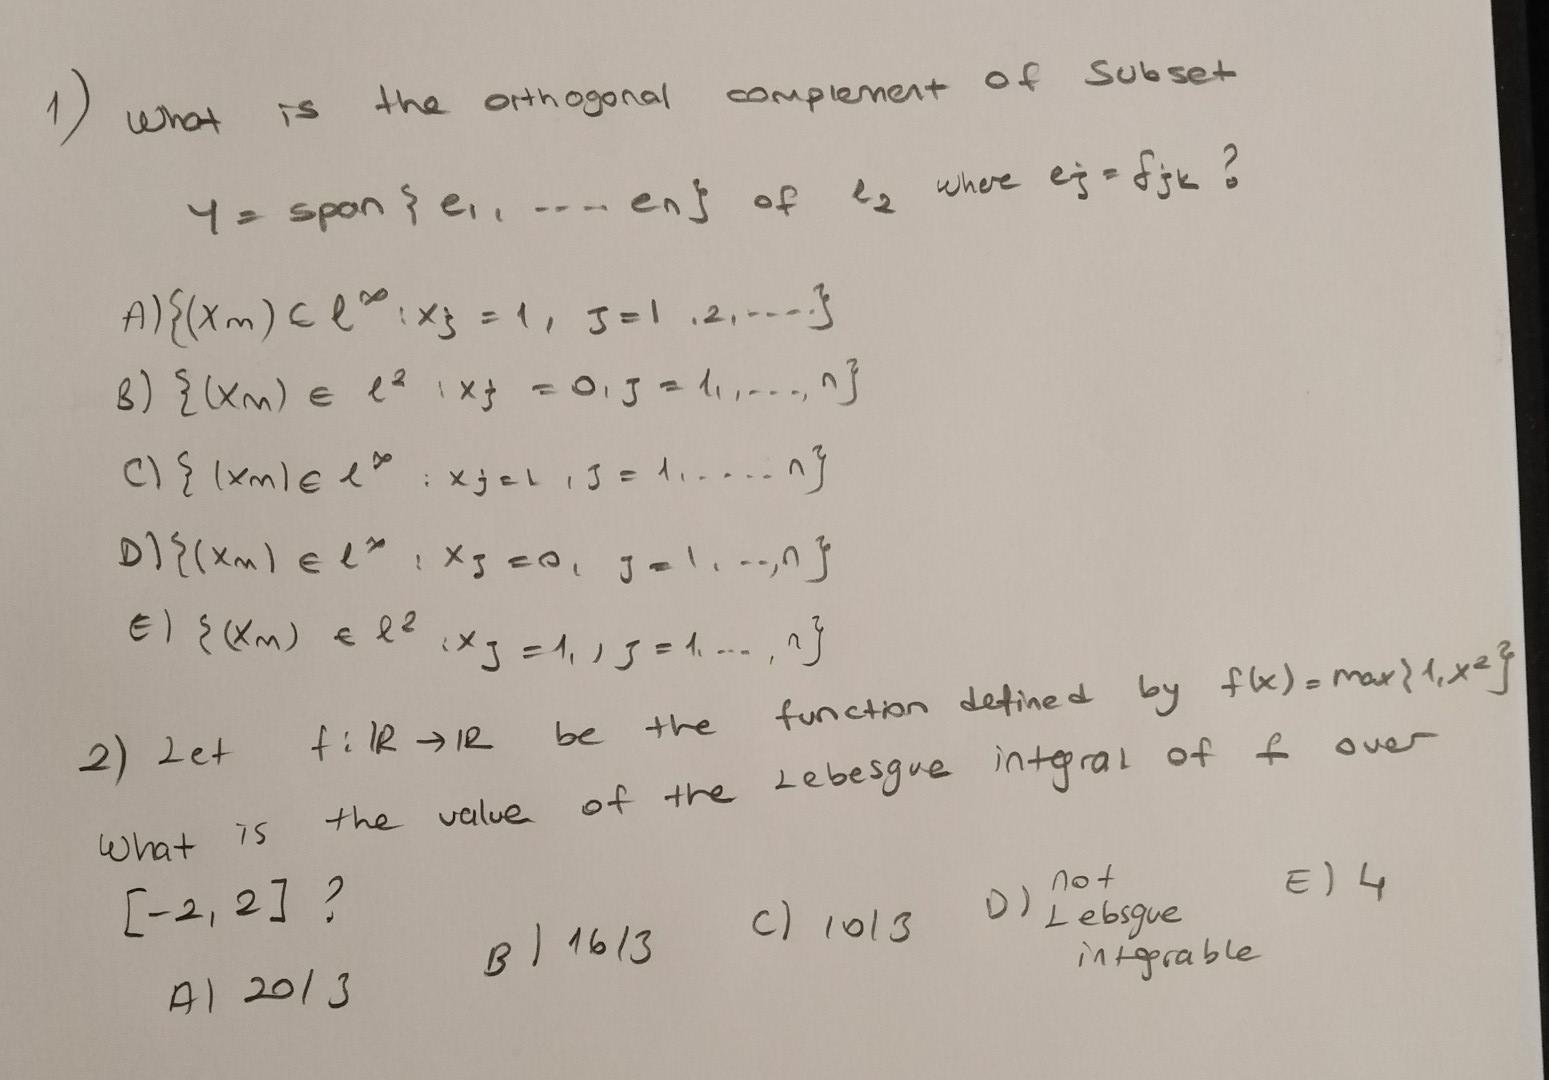 1) What is the orthogonal complement of subset
Y = span { e1, ---- en } of ℓ2 where ej = δjk ?
A) {(xm) ⊂ ℓ^∞ : xj = 1, j=1,2,----}
B) {(xm) ∈ ℓ² : xj = 0, j = 1,,---, n}
C) { (xm) ∈ ℓ^∞ : xj=1, j = 1,.....n}
D) {(xm) ∈ ℓ^∞ : xj = 0, j = 1, --, n}
E) {(xm) ∈ ℓ² : xj = 1, , j = 1, ---, n}
2) Let f: ℝ → ℝ be the function defined by f(x) = max{1, x²}
What is the value of the Lebesgue integral of f over
[-2, 2] ?
A) 20/3 B) 16/3 C) 10/3 D) not Lebsgue integrable E) 4